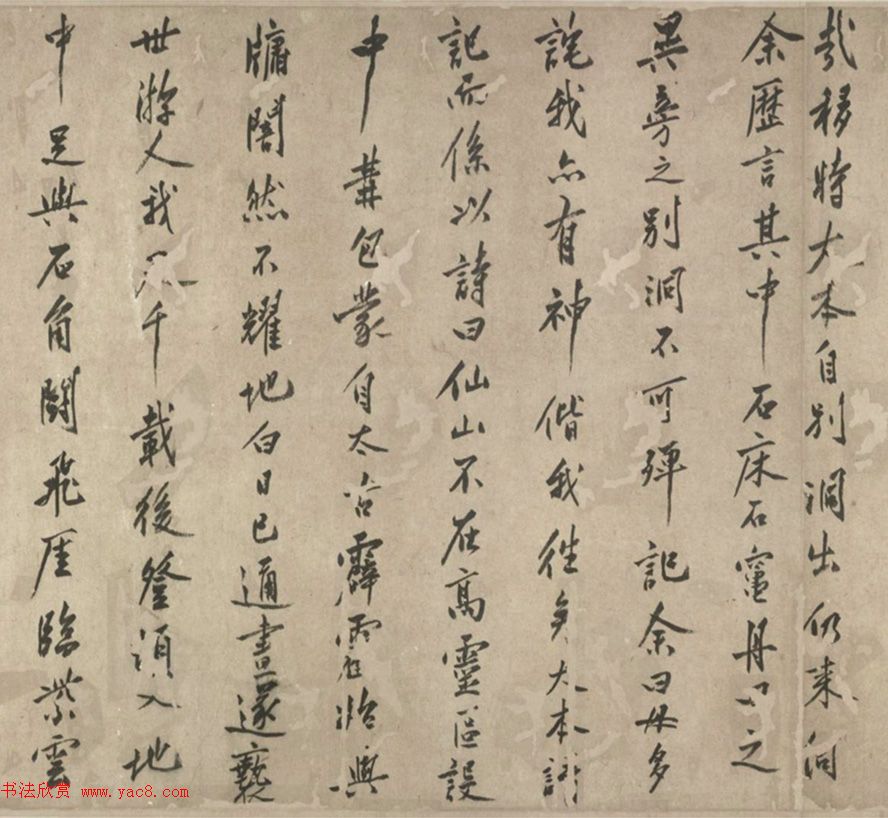 哉移時大本自別洞出仍來向
余歷言其中石床石竈丹〼之
異旁之別洞不可殫記余曰毋多
詫我亦有神偕我往矣大本請
記而係以詩曰仙山不在高靈區設
中冓包蒙自太古霹靂始與
牖闇然不耀地白日已通晝遂襲
世游人我〼千載後登須入地
中足與石角鬪飛厓臨紫雲
书法欣赏 www.yac8.com